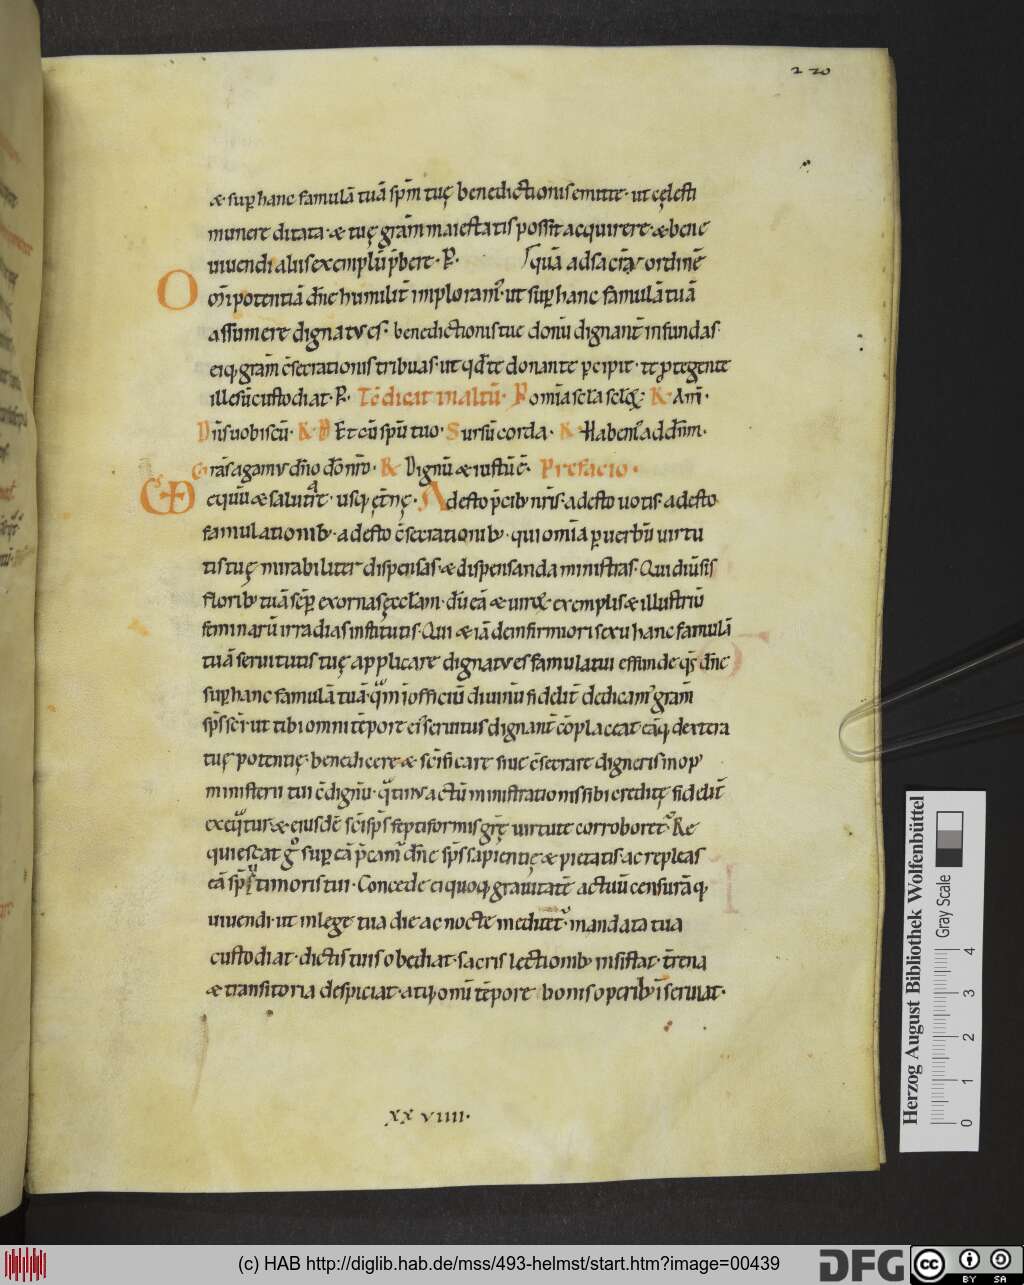 220
& sup hanc famulā tuā spm̄ tuę benedictionis emitte · ut cęlesti
munere ditata · & tuę gram̄ maiestatis possit acquirere · & bene
uiuendi aliis exemplū p̄bere · P. quā ad sacrā ordinē
Om̅ipotentiā dn̄e humilit̄ imploram᾽ · ut sup hanc famulā tuā
assumere dignatus es · benedictionis tue donū dignant̄ infundas
eiq, gram̄ c̄secrationis tribuas · ut qd̄ te donante pcipit · te ptegente
illesū custodiat · P. Tc̄ dicit in altū · P omīa scl̄a sclōꝝ · R Am̄ ·
Dn̄s uobiscū · R Et cū spū tuo · Sursū corda · R Habem᾽ ad dn̄m ·
Gras̄ agamus dn̄o dō nr̄o · R Dignū & iustū ē · Prefacio ·
equū & salutār̄ · usq, ęt̄nę · Adesto p̄cib, nr̄is · adesto uotis · adesto
famulationib, · adesto c̄secrationib, · qui omīa p uerbū uirtu
tis tuę mirabiliter dispensas · & dispensanda ministras · Qui diūsis
florib, tuā sēp exornas ęccl̄am · dū eā & uiroꝝ exemplis & illustriū
feminarū irradias institutis · Qui & iā de infirmiori sexu hanc famulā
tuā seruitutis tuę applicare dignatus es famulatui effunde qs̄ dn̄e
sup hanc famulā tuā · q̄m ī officiū diuinū fiddit̄ dedicam᾽ gram̄
sps̄ scī · ut tibi omni tēpore ei᾽ seruitus dignant̄ cōplaceat eāq, dextera
tuę potentię · benedicere & scīficare siue c̄secrare digneris in op᾽
ministerii tui c̄dignū · q̄tinus actū ministrationis sibi creditę fiddit̄
exeq̄tur · & eiusdē scī sps̄ septiformis gr̄ę uirtute corroboret᾽ · Re
quiescat g᾽ sup eā p̄cam᾽ dn̄e sps̄ sapientię & pietatis ac repleas
eā sps̄ timoris tui · Concede ei quoq, grauitatē actuū censurāq,
uiuendi · ut in lege tua die ac nocte meditet᾽ · mandata tua
custodiat · dictis tuis obediat · sacris lectionib, insistat · tr̄ena
& transitoria despiciat · atq, omī tēpore bonis operib, īseruiat ·
XXVIIII ·
Herzog August Bibliothek Wolfenbüttel
Gray Scale
0 1 2 3 4
(c) HAB http://diglib.hab.de/mss/493-helmst/start.htm?image=00439
DFG
cc
BY SA